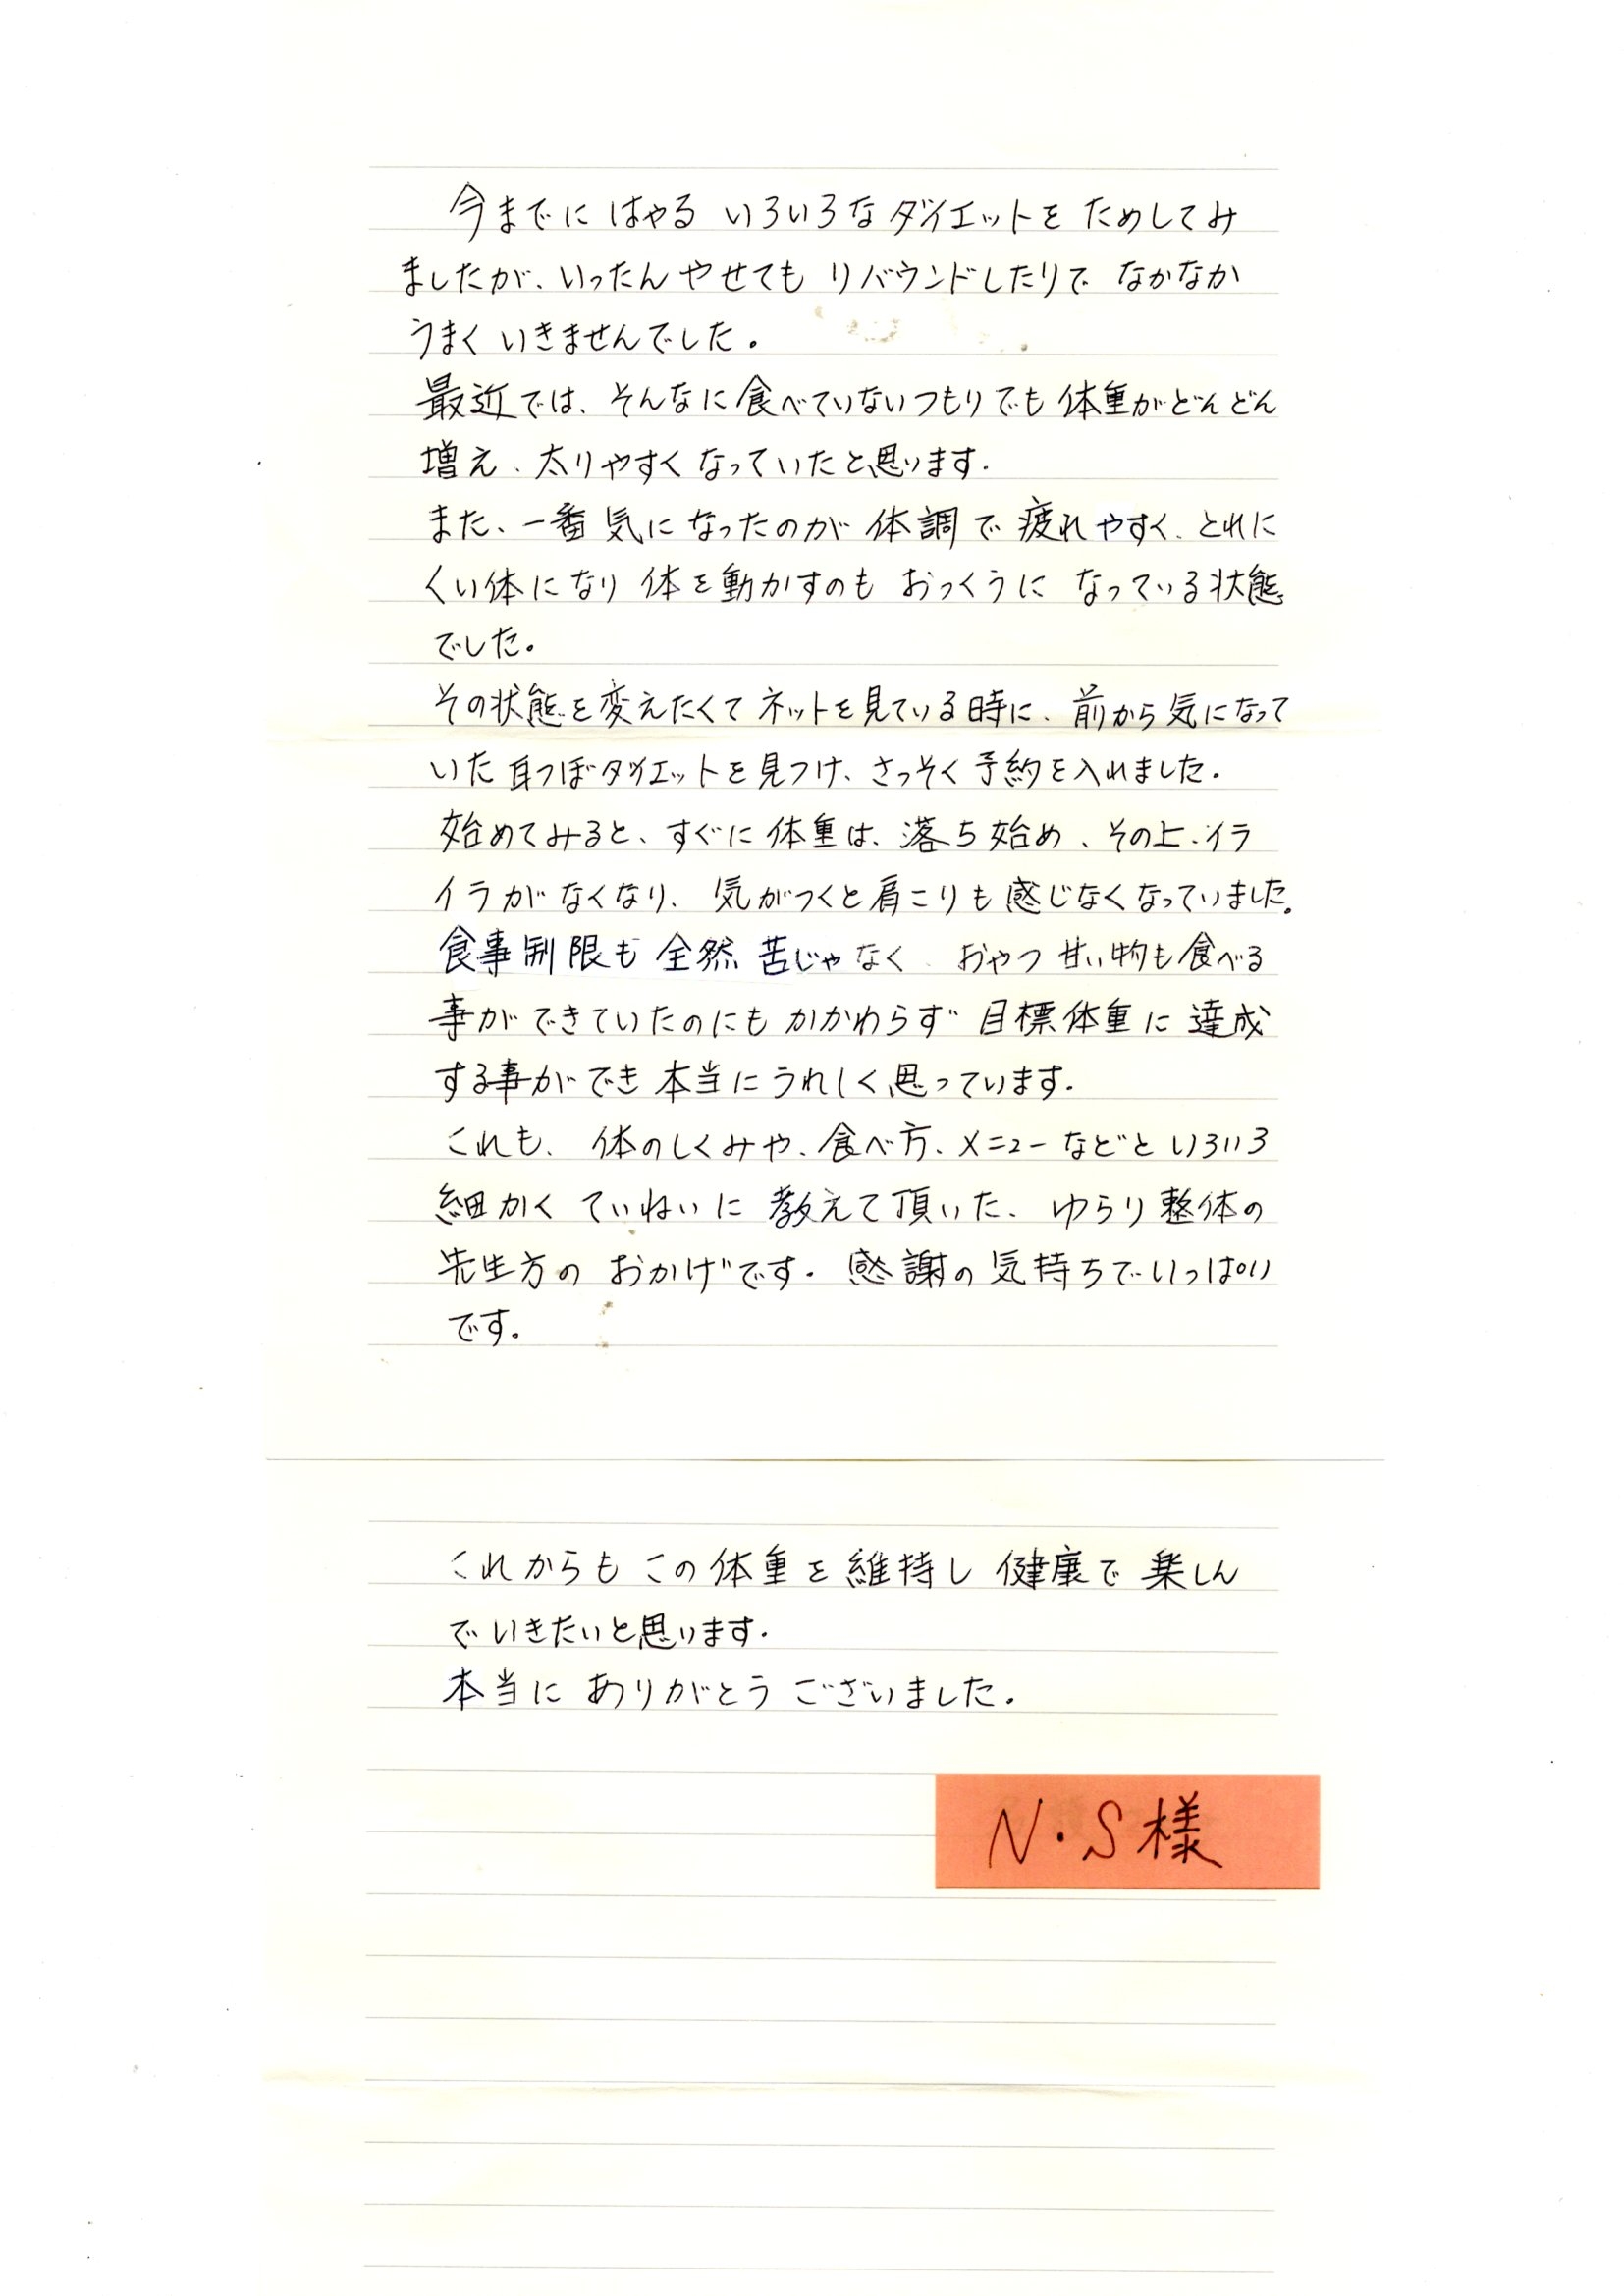 今までに はやる いろいろな ダイエットを ためしてみ
ましたが、いったん やせても リバウンドしたりで なかなか
うまく いきませんでした。
最近では、そんなに 食べていないつもりでも 体重がどんどん
増え、太りやすく なっていたと思います。
また、一番 気に なったのが 体調で 疲れやすく、とれに
くい体に なり 体を動かすのも おっくうに なっている状態
でした。
その状態を変えたくて ネットを見ている時に、前から気になって
いた 耳つぼダイエットを見つけ、さっそく 予約を入れました。
始めてみると、すぐに 体重は、落ち始め、その上、イラ
イラが なくなり、気がつくと肩こりも 感じなくなっていました。
食事制限も 全然 苦じゃなく、おやつ 甘い物も食べる
事ができていたのにも かかわらず 目標体重に 達成
する事ができ 本当にうれしく思っています。
これも、体のしくみや、食べ方、メニューなどと いろいろ
細かく ていねいに 教えて頂いた、ゆらり整体の
先生方の おかげです。感謝の気持ちでいっぱい
です。
これからも この体重を維持し 健康で 楽しん
で いきたいと思います。
本当に ありがとう ございました。
N・S様